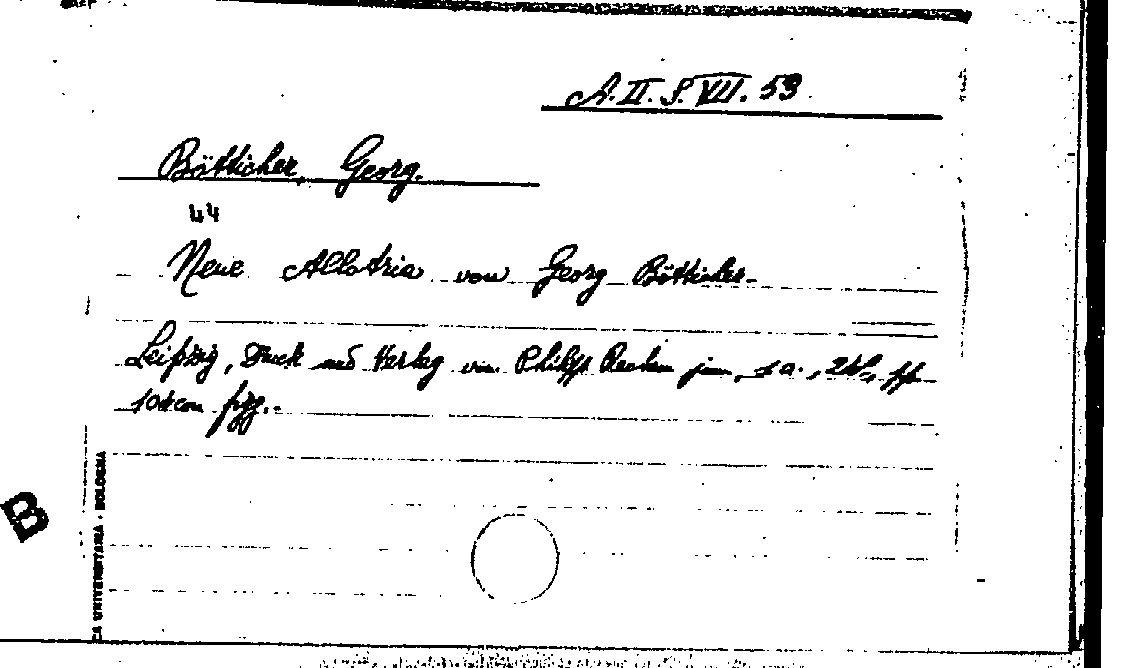 A.II.S.VII.53
Bötticher, Georg.
44
Neue Allotria von Georg Bötticher.
Leipzig, Druck und Verlag von Philipp Reclam jun., s.a., 24°, pp.
104 con figg.
B
CA UNIVERSITARIA - BOLOGNA